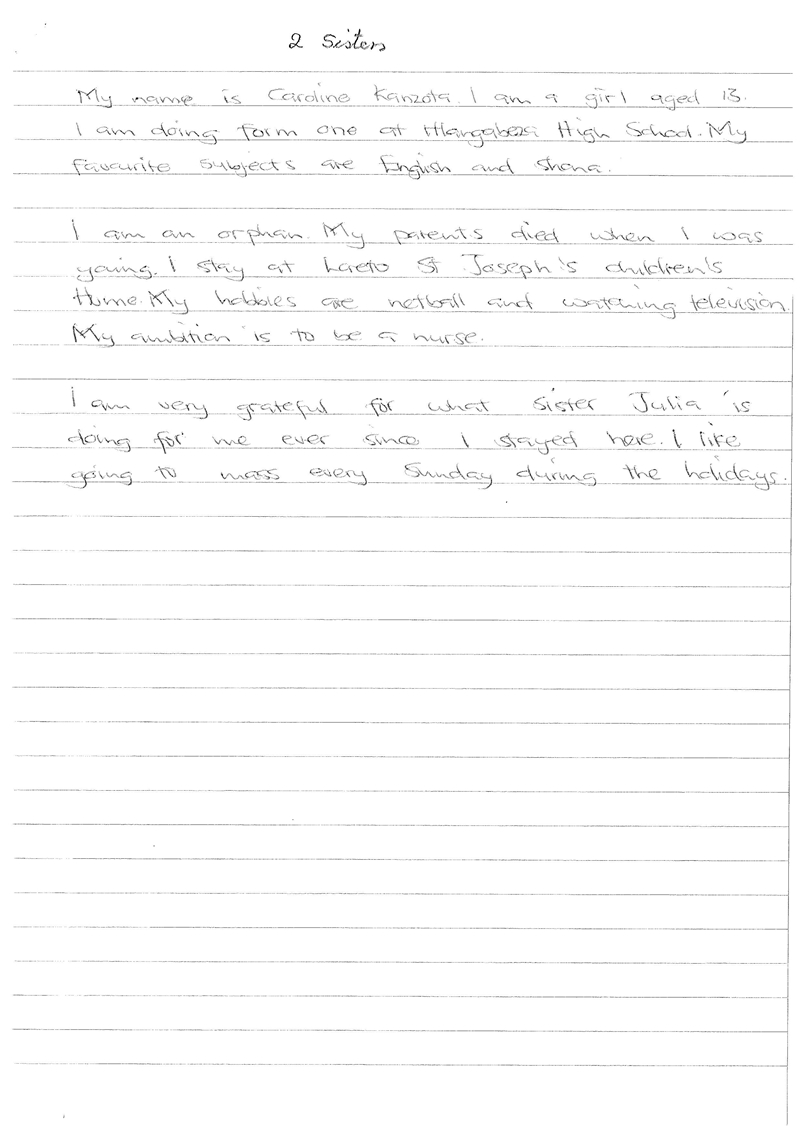 2 Sisters
My name is Caroline Kanzota. I am a girl aged 13.
I am doing form one at Hlangabeza High School. My
favourite subjects are English and Shona.
I am an orphan. My parents died when I was
young. I stay at Loreto St Joseph's children's
Home. My hobbies are netball and watching television.
My ambition is to be a nurse.
I am very grateful for what sister Julia is
doing for me ever since I stayed here. I like
going to mass every Sunday during the holidays.